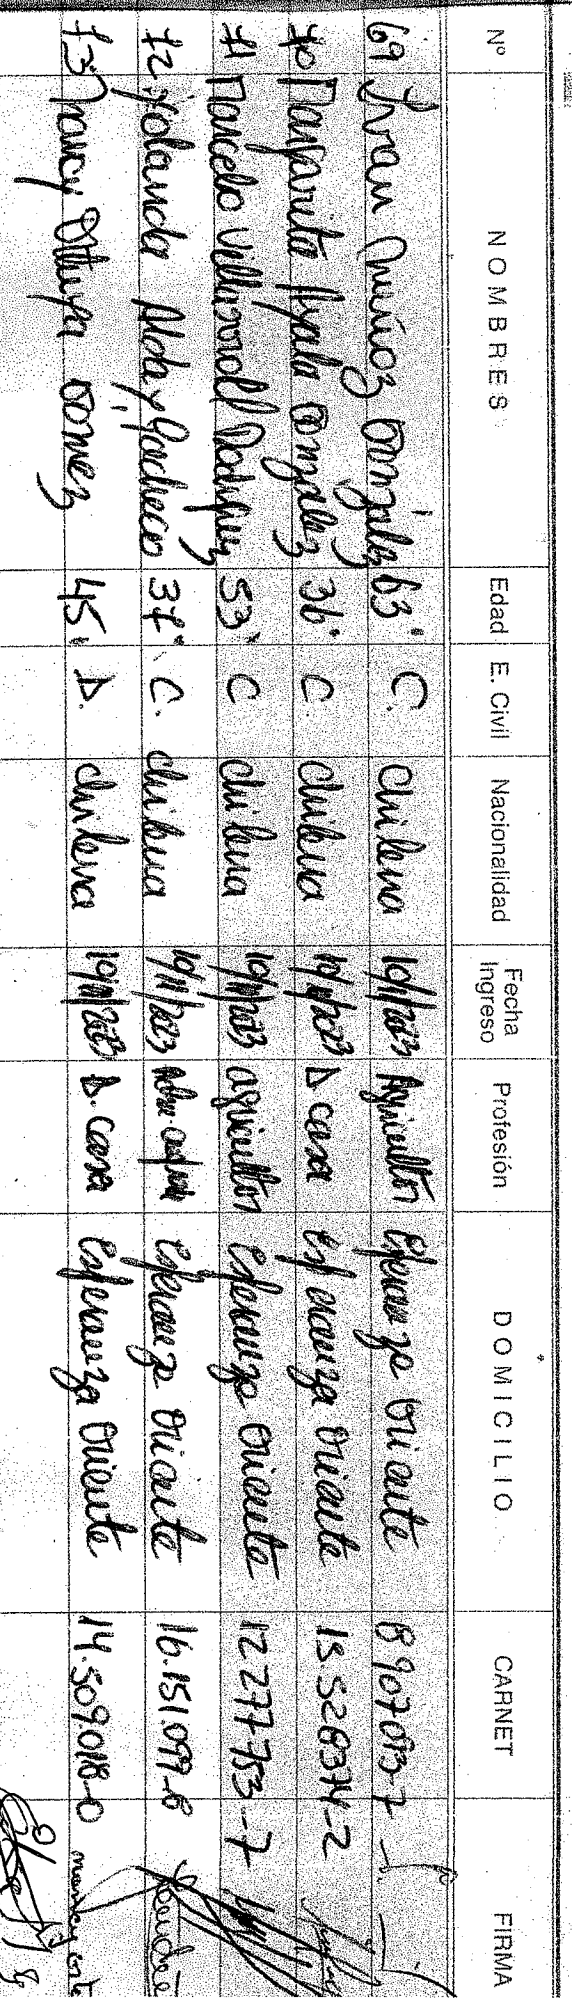 Nº NOMBRES Edad E. Civil Nacionalidad Fecha Ingreso Profesión DOMICILIO CARNET FIRMA
69 Ivan Muñoz González 63 C. Chilena 10/11/2023 Agricultor Esperanza Oriente 8907093-7
70 Margarita Ayala González 36 C. Chilena 10/11/2023 D casa Esperanza Oriente 15.528374-2
71 Marcelo Villarroel Rodríguez 53 C chilena 10/11/2023 agricultor Esperanza Oriente 12.277.753-7
72 Yolanda Alday Pacheco 37 C. chilena 10/11/2023 Esperanza Oriente 16.151.099-8
73 Nancy Gómez 45 D. chilena 10/11/2023 D. casa Esperanza Oriente 14.509.018-0 nancy